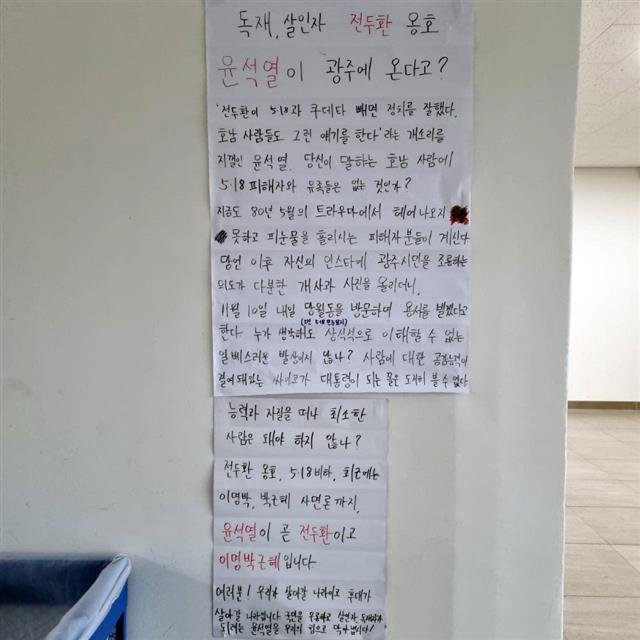 독재, 살인자 전두환 옹호
윤석열이 광주에 온다고?
'전두환이 5·18과 쿠데타 빼면 정치를 잘했다.
호남 사람들도 그런 얘기를 한다' 라는 개소리를
지껄인 윤석열. 당신이 말하는 호남 사람에
5·18 피해자와 유족들은 없는 것인가?
지금도 80년 5월의 트라우마에서 헤어나오지
못하고 피눈물을 흘리시는 피해자분들이 계신다
망언 이후 자신의 인스타에 광주시민을 조롱하는
의도가 다분한 개사과 사진을 올리더니,
11월 10일 내일 망월동을 방문하여 용서를 빌겠다고
한다 누가 생각해도 상식적으로 이해할 수 없는
일베스러운 발상이지 않나? 사람에 대한 공감능력이
결여돼있는 싸이코가 대통령이 되는 꼴은 도저히 볼 수 없다
능력과 자질을 떠나 최소한
사람은 돼야 하지 않나?
전두환 옹호, 5·18비하, 최근에는
이명박, 박근혜 사면론까지,
윤석열이 곧 전두환이고
이명박근혜입니다
여러분! 우리가 살아갈 나라이고 후대가
살아갈 나라입니다 국민을 우롱하고 살인자, 독재자를
윤석열을 우리의 힘으로 막읍시다!